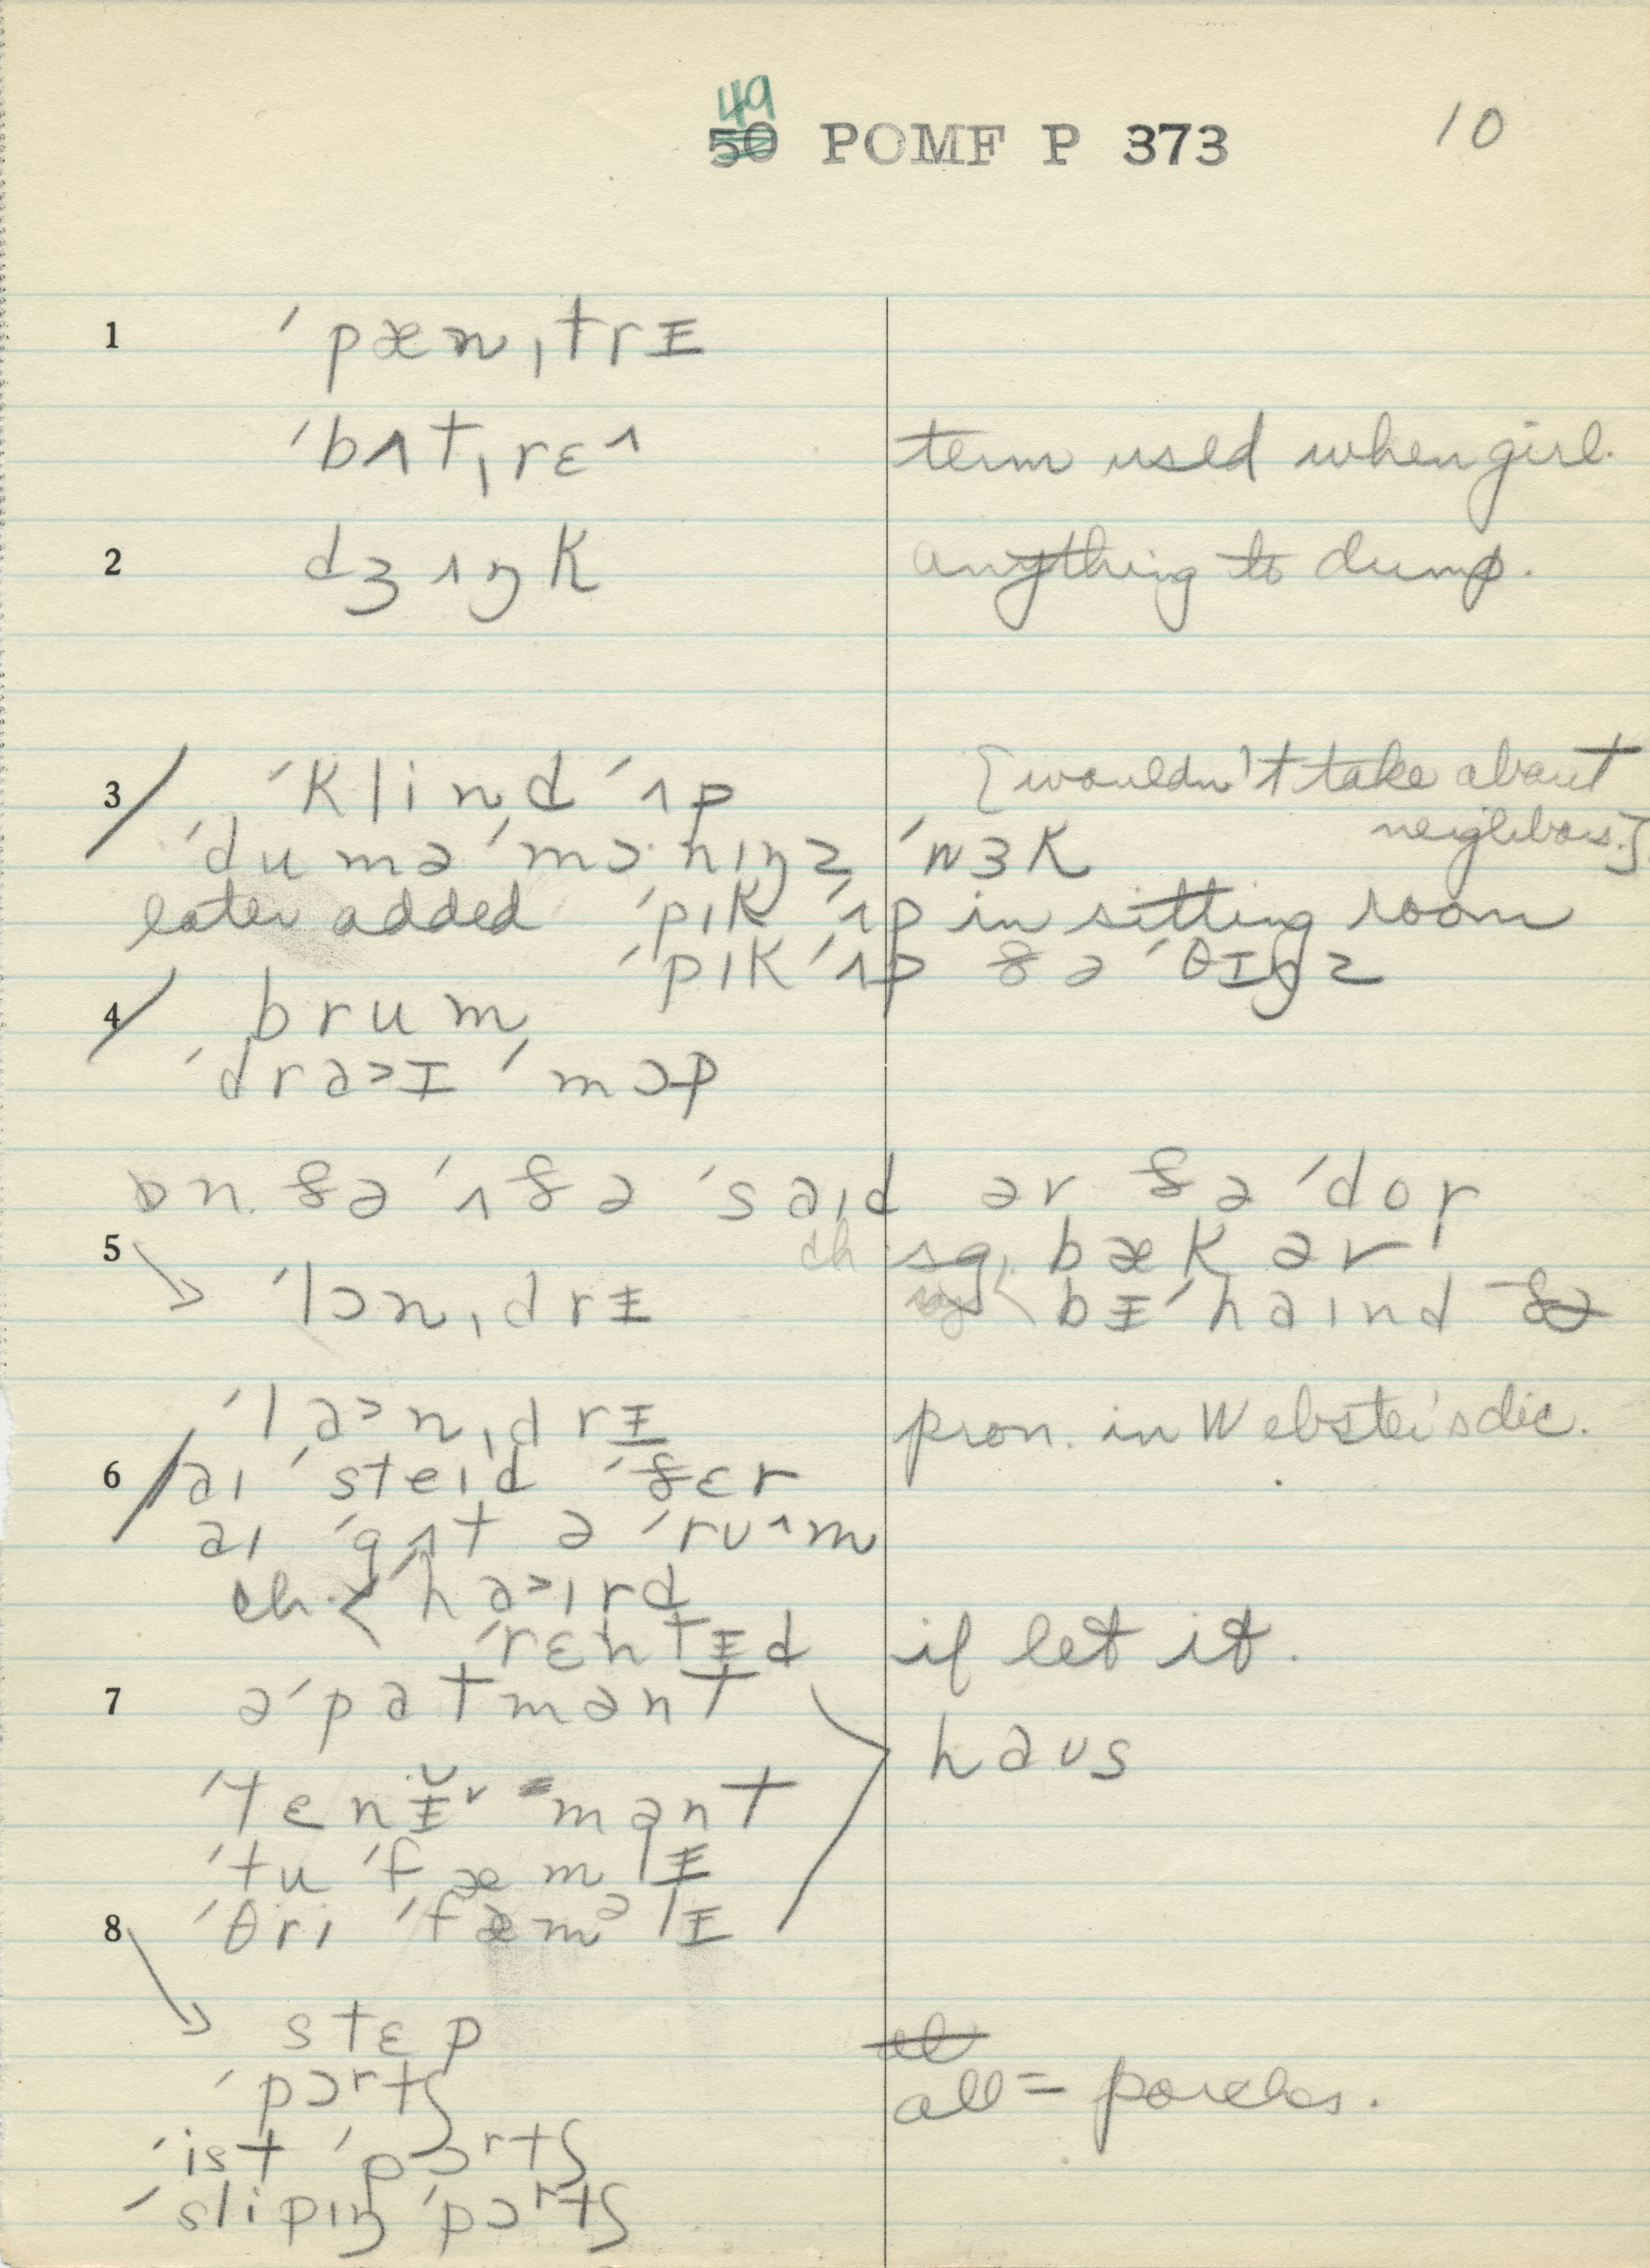 49
50 POMF P 373 10
1 ˈpæn,trɪ
ˈbʌt,rɛ^ term used when girl.
2 dʒʌŋk anything to dump.
3 / ˈklind ˈʌp [wouldn't take about
neighbors.]
ˈdumə ˈmɔ·nɪŋz ˈwɜk
later added ˈpɪk ˈʌp in sitting room
ˈpɪk ˈʌp ðə ˈθɪŋz
4 / brum
ˈdra>ɪ ˈmɔp
ɒn ðə ˈʌðə ˈsaɪd ər ðə ˈdor
5 ch sg. bæk ər
ˈlɔn,drɪ bɪˈhaɪnd ðə
ˈla>n,drɪ pron. in Webster's dic.
6 / aɪ ˈsteɪd ˈðɛr
aɪ ˈgʌt ə ˈrʊ^m
ch. < ˈha>ɪrd
ˈrɛntɪd if let it.
7 əˈpatmənt
haus
ˈtɛnɪr mənt
ˈtu ˈfæmlɪ
8 ˈθri ˈfæməlɪ
stɛp
al
ˈpɔrtʃ all = porches.
ˈist ˈpɔrtʃ
ˈslipɪŋ ˈpɔrtʃ